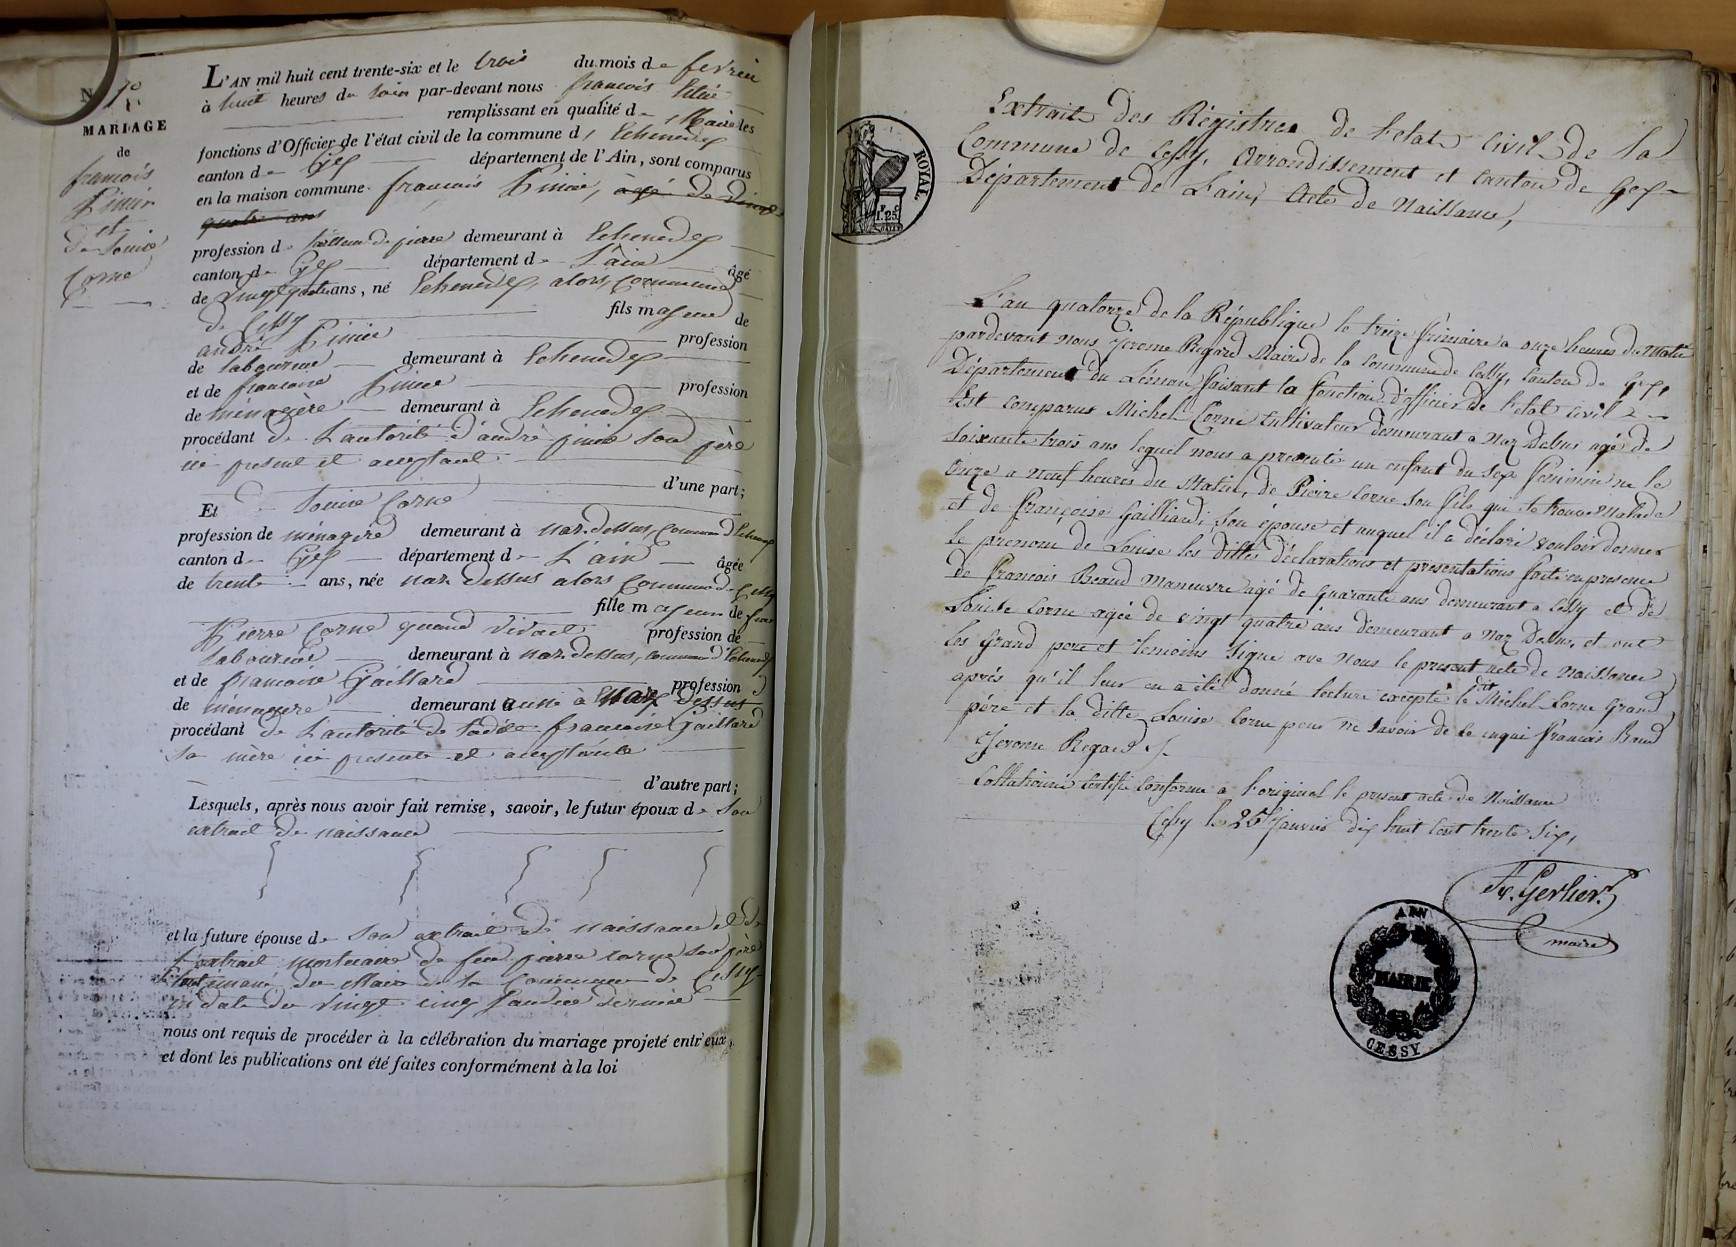 N 1er
MARIAGE
de
françois
et
de Louise
Corne
L'AN mil huit cent trente-six et le trois du mois de fevrier
à huit heures du soir par-devant nous françois
remplissant en qualité de Maire les
fonctions d'Officier de l'état civil de la commune d'Echenevex
canton de Gex département de l'Ain, sont comparus
en la maison commune françois agé de vingt
quatre ans
profession de tailleur de pierre demeurant à Echenevex
canton de Gex département de L'ain âgé
de vingt quatre ans, né Echenevex, alors, Commune
de Cessy fils majeur de
andré profession
de laboureur demeurant à Echenevex
et de françoise profession
de ménagère demeurant à Echenevex
procédant de L'autorité d'andré son père
ici present et acceptant
d'une part;
Et Louise Corne
profession de ménagère demeurant à naz-dessus, commune d'Echenevex
canton de Gex département de L'ain âgée
de trente ans, née naz dessus alors commune de Cessy
fille majeure de feu
Pierre Corne quand vivait profession de
laboureur demeurant à naz-dessus, commune d'Echenevex
et de françoise Gaillard profession
de ménagère demeurant aussi à naz dessus
procédant de L'autorité de françoise Gaillard
sa mère ici presente et acceptante
d'autre part;
Lesquels, après nous avoir fait remise, savoir, le futur époux de son
extrait de naissance
et la future épouse de son extrait de naissance et de
L'extrait mortuaire de feu pierre corne son père
émané du Maire de la Commune de Cessy
en date du vingt cinq Janvier dernier
nous ont requis de procéder à la célébration du mariage projeté entr'eux,
et dont les publications ont été faites conformément à la loi
ROYAL
1.25
Extrait des Régistres de l'etat civil de la
Commune de Cessy, Arrondissement et Canton de Gex
Département de L'ain, Acte de Naissance,
L'an quatorze de la République le treize frimaire a onze heures du Matin
pardevant nous Jerome Regard Maire de la Commune de Cessy, Canton de Gex,
Département du Léman faisant la fonction d'officier de l'etat civil
Est comparus Michel Corne Cultivateur demeurant a Naz Dessus agé de
soixante trois ans lequel nous a presenté un enfant du sexe feminin né le
onze a neuf heures du Matin, de Pierre Corne son fils qui se trouve Malade
et de françoise Gailliard, son épouse et auquel il a déclaré vouloir donner
le prenom de Louise les dittes déclarations et présentations faite en presence
de françois Beaud Maneuvre agé de quarante ans demeurant a Cessy et de
Louise Corne agée de vingt quatre ans demeurant a Naz Dessus, et ont
les Grand pere et temoins signé ave nous le present acte de Naissance
après qu'il leur en a été donné lecture excepté le dit Michel Corne Grand
père et la ditte Louise Corne pour ne savoir de ce enqui francois Beaud
Jerome Regard
Collationné certifié conforme a l'original le present acte de Naissance
Cessy le 25 Janvier dix huit cent trente six,
Gerlier
maire
AIN
MAIRIE
CESSY